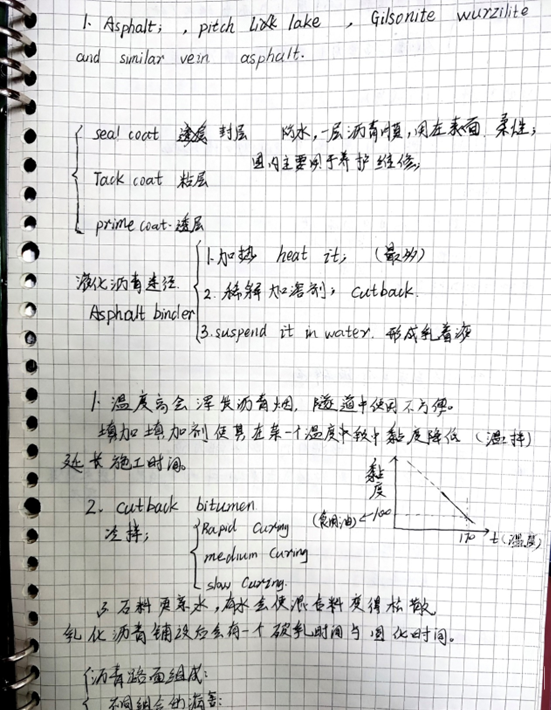 1. Asphalt; , pitch lake , Gilsonite wurzilite
and similar vein asphalt.
seal coat 封层 防水,一层沥青膜,用在表面 柔性;
国内主要用于养护维修;
Tack coat 粘层
prime coat. 透层
液化沥青途径
Asphalt binder
1. 加热 heat it; (最多)
2. 稀释 加溶剂; cutback.
3. suspend it in water. 形成乳着液
1. 温度高会挥发沥青烟, 隧道中使用不方便。
填加填加剂使其在某一个温度中较中黏度降低 (温拌)
延长施工时间。
黏度
(食用油) ←100
170 t(温度)
2. cutback bitumen
冷拌;
Rapid Curing
medium Curing
slow Curing.
3 石料更亲水,有水会使混合料变得松散
乳化沥青铺设后会有一个破乳时间与固化时间。
沥青路面组成:
不同组合的病害: